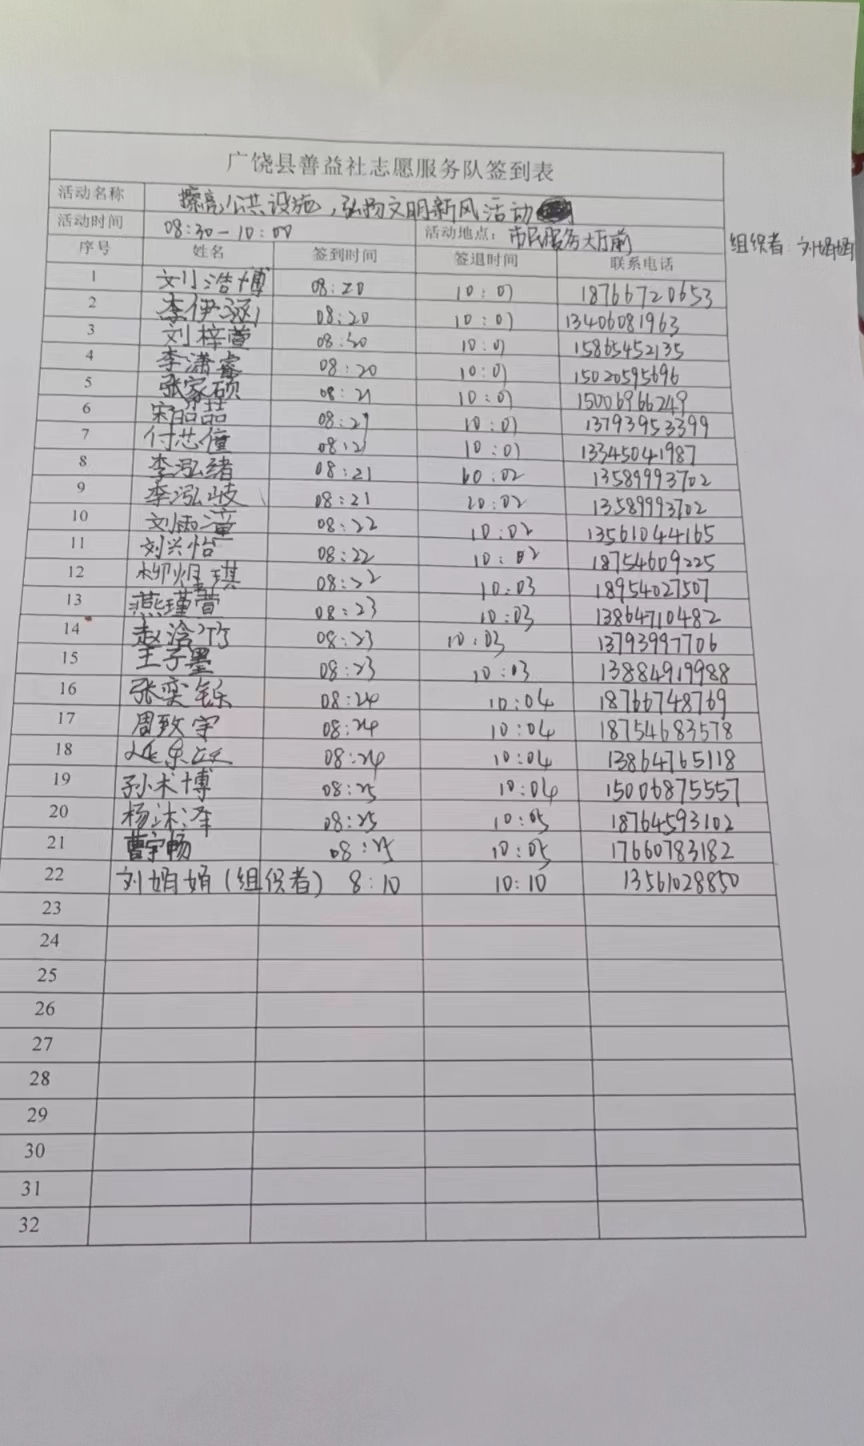 广饶县善益社志愿服务队签到表
活动名称 擦亮公共设施,弘扬文明新风活动
活动时间 08:30-10:00 活动地点: 市民服务大厅前 组织者 刘娟娟
序号 姓名 签到时间 签退时间 联系电话
1 刘浩博 08:20 10:01 18766720653
2 李伊涵 08:20 10:01 13406081963
3 刘梓萱 08:20 10:01 15865452135
4 李潇睿 08:20 10:01 15020595696
5 张家硕 08:21 10:01 15006966249
6 宋喆 08:21 10:01 13793953399
7 付芯僮 08:21 10:01 13345041987
8 李泓绪 08:21 10:02 13589993702
9 李泓岐 08:21 10:02 13589993702
10 刘雨潼 08:22 10:02 13561044165
11 刘兴怡 08:22 10:02 18754609225
12 柳煜琪 08:22 10:03 18954027507
13 燕瑾萱 08:23 10:03 13864710482
14 赵浛竹 08:23 10:03 13793997706
15 王子墨 08:23 10:03 13884919988
16 张奕铄 08:24 10:04 18766748769
17 周致宇 08:24 10:04 18754683578
18 08:24 10:04 13864765118
19 孙术博 08:25 10:04 15006875557
20 杨沐泽 08:25 10:05 18764593102
21 曹宇畅 08:25 10:05 17660783182
22 刘娟娟(组织者) 8:10 10:10 13561028850
23
24
25
26
27
28
29
30
31
32